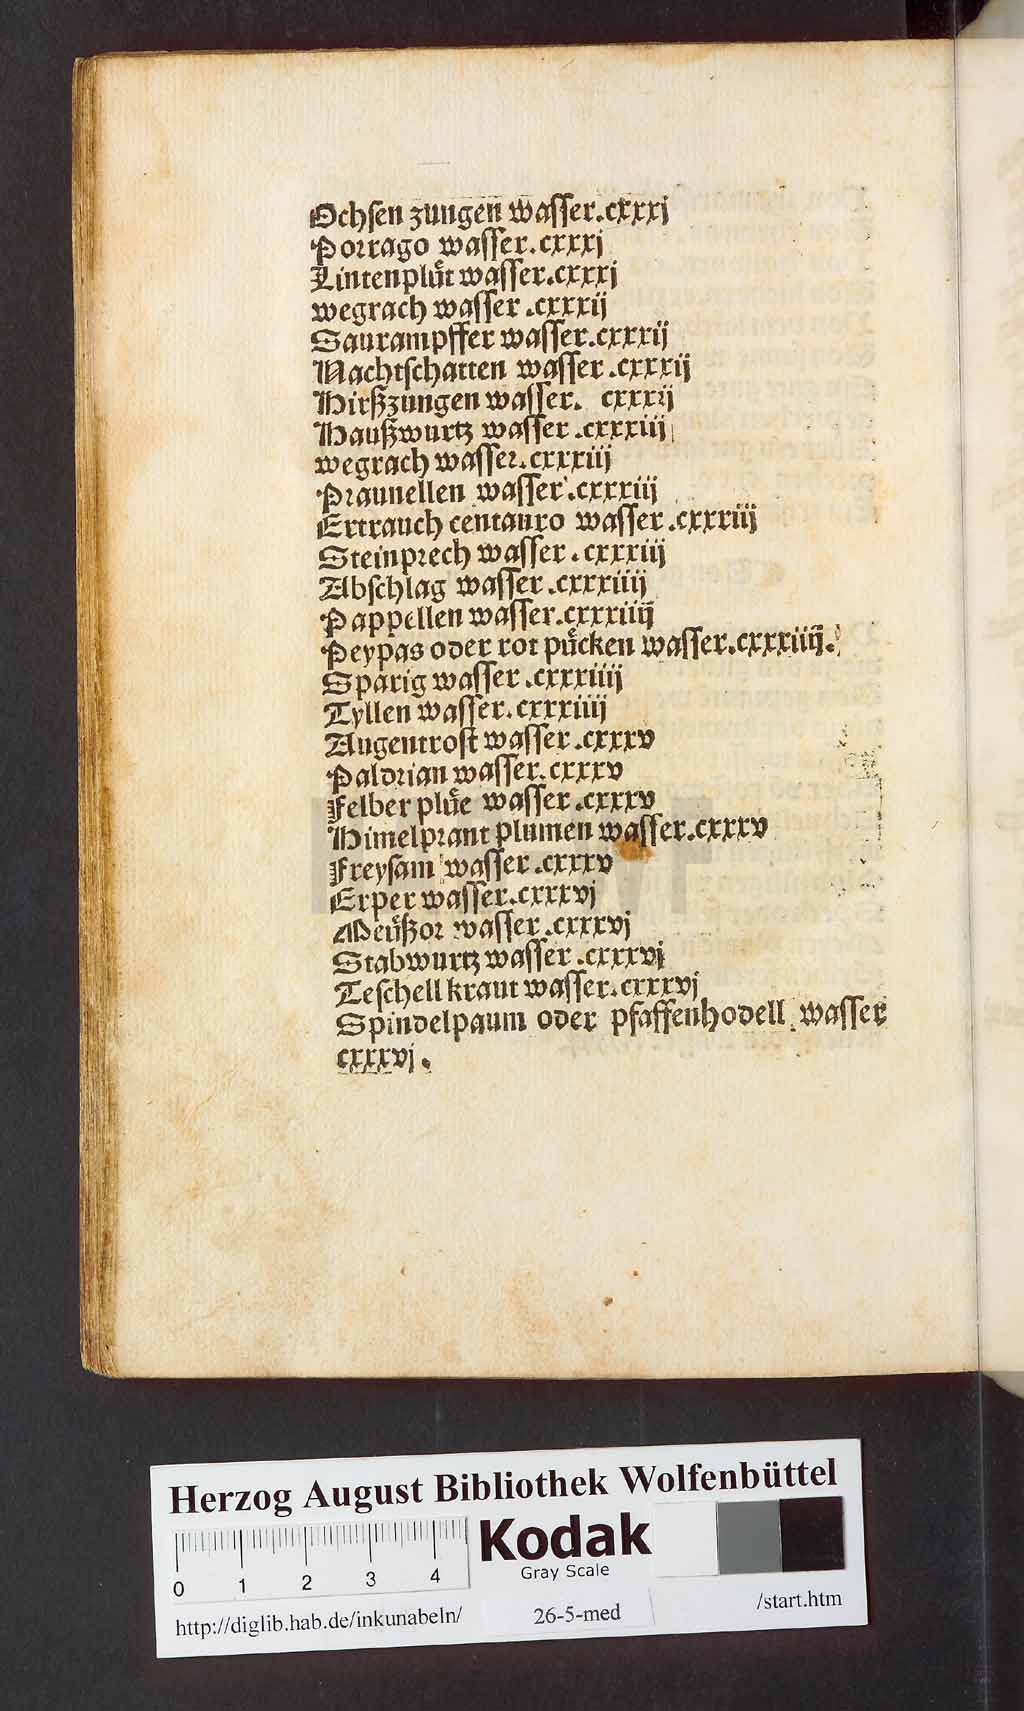 Ochsen zungen wasser.cxxxj
Porrago wasser.cxxxj
Lintenplůt wasser.cxxxj
wegrach wasser.cxxxij
Saurampffer wasser.cxxxij
Nachtschatten wasser.cxxxij
Hirßzungen wasser. cxxxij
Haußwurtz wasser.cxxxiij
wegrach wasser.cxxxiij
Praunellen wasser.cxxxiij
Ertrauch centauro wasser.cxxxiij
Steinprech wasser.cxxxiij
Abschlag wasser.cxxxiiij
Pappellen wasser.cxxxiiij
Peypas oder rot půcken wasser.cxxxiiij.
Sparig wasser.cxxxiiij
Tyllen wasser.cxxxiiij
Augentrost wasser.cxxxv
Paldrian wasser.cxxxv
Felber plůe wasser.cxxxv
Himelprant plumen wasser.cxxxv
Freysam wasser.cxxxv
Erper wasser.cxxxvj
Meůßor wasser.cxxxvj
Stabwurtz wasser.cxxxvj
Teschell kraut wasser.cxxxvj
Spindelpaum oder pfaffenhodell wasser
cxxxvj.
Herzog August Bibliothek Wolfenbüttel
Kodak
Gray Scale
0 1 2 3 4
http://diglib.hab.de/inkunabeln/ 26-5-med /start.htm